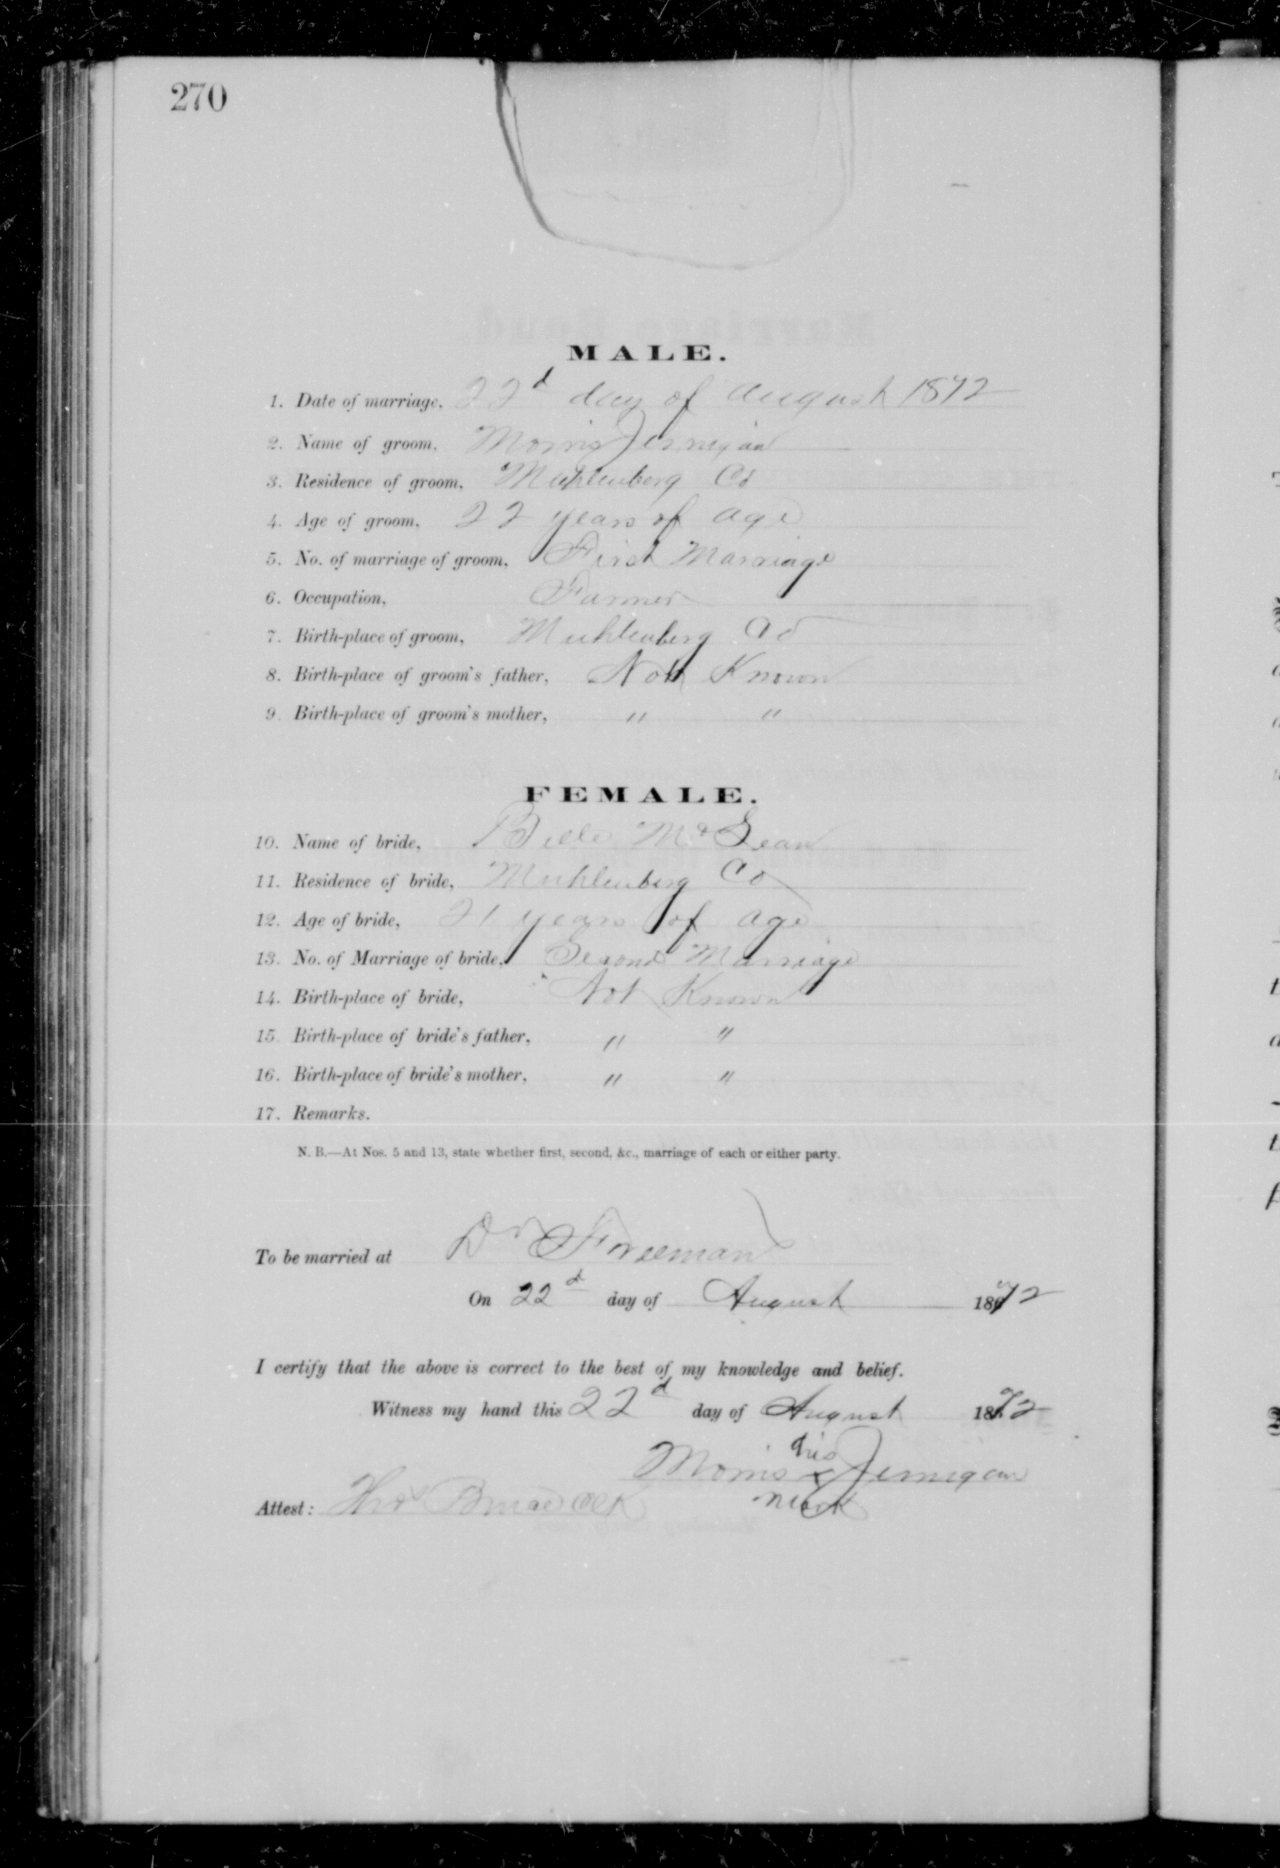 270
MALE.
1. Date of marriage, 22d day of August 1872
2. Name of groom, Morris Jernigan
3. Residence of groom, Muhlenberg Co
4. Age of groom, 22 years of age
5. No. of marriage of groom, First Marriage
6. Occupation, Farmer
7. Birth-place of groom, Muhlenberg Co
8. Birth-place of groom's father, Not Known
9. Birth-place of groom's mother, " "
FEMALE.
10. Name of bride, Belle McLean
11. Residence of bride, Muhlenberg Co
12. Age of bride, 21 years of age
13. No. of Marriage of bride, Second Marriage
14. Birth-place of bride, Not Known
15. Birth-place of bride's father, " "
16. Birth-place of bride's mother, " "
17. Remarks.
N. B.—At Nos. 5 and 13, state whether first, second, &c., marriage of each or either party.
To be married at Dr Freeman
On 22d day of August 1872
I certify that the above is correct to the best of my knowledge and belief.
Witness my hand this 22d day of August 1872
his
Morris x Jernigan
mark
Attest: Thos